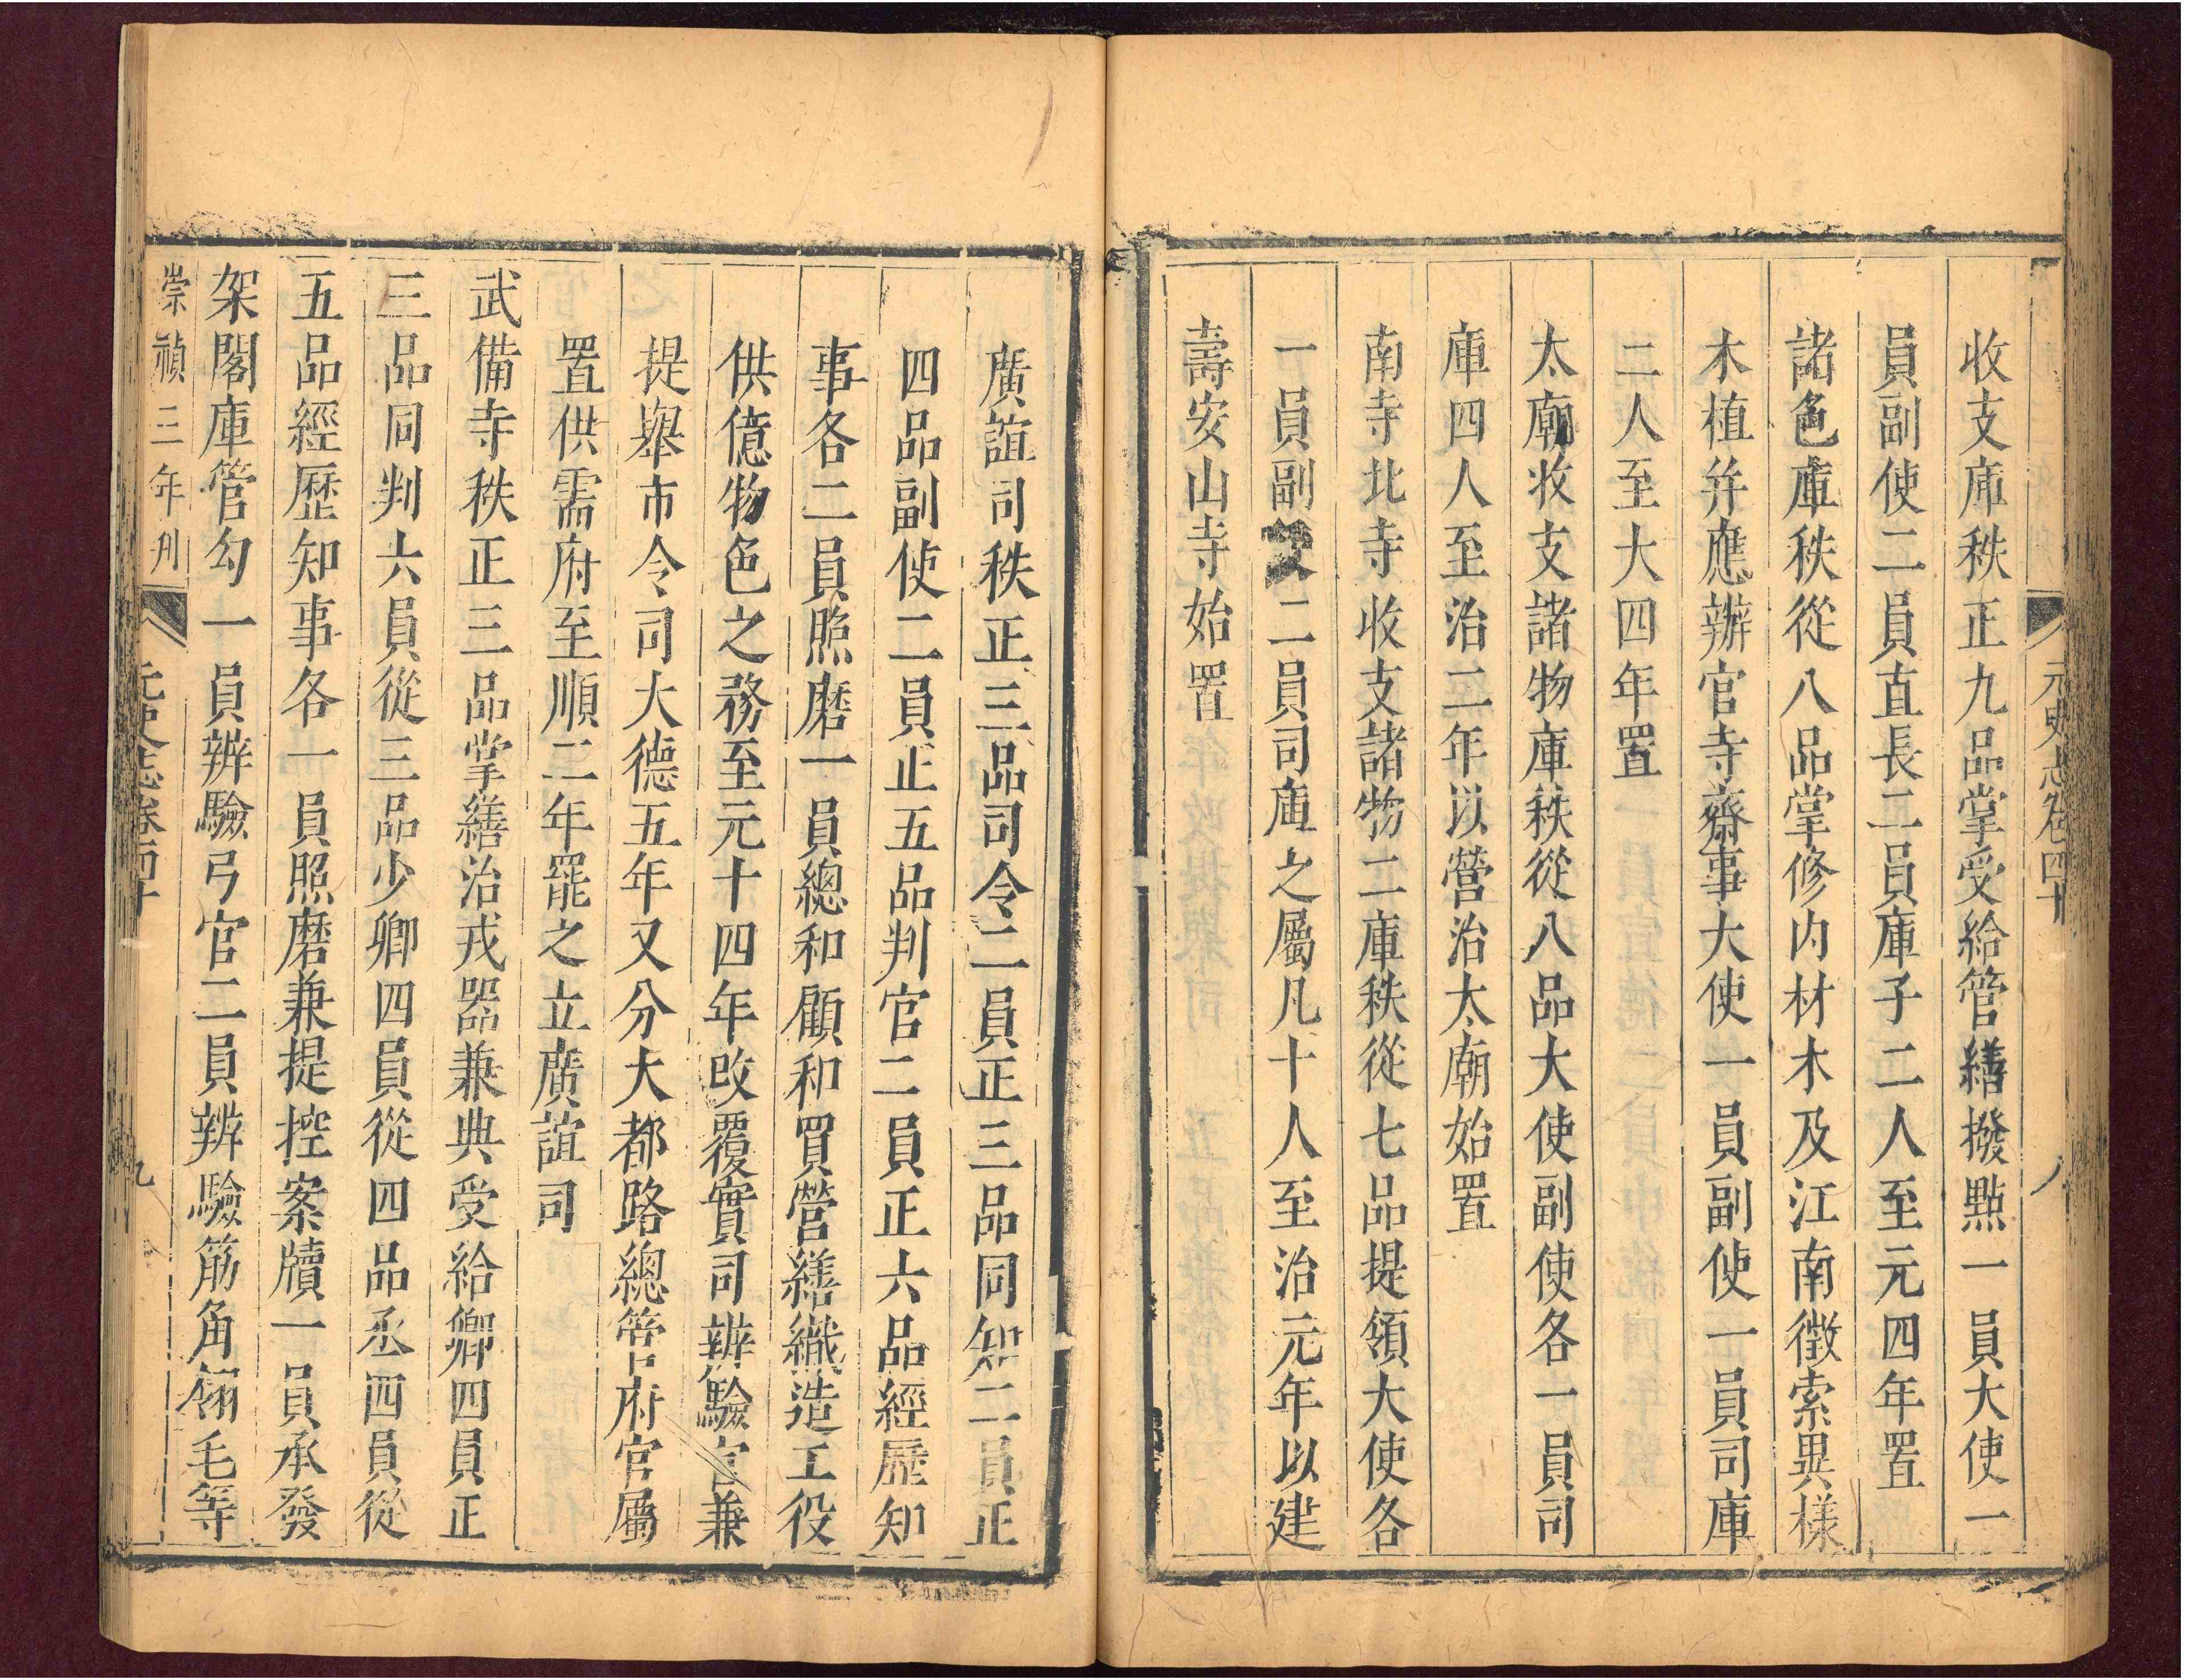 元史志卷四十
八
收支庫秩正九品掌受給管繕撥㸃一員大使一
員副使二員直長二員庫子二人至元四年置
諸色庫秩從八品掌修内材木及江南徵索異樣
木植并應辦官寺齋事大使一員副使一員司庫
二人至大四年置
太廟收支諸物庫秩從八品大使副使各一員司
庫四人至治二年以營治太廟始置
南寺北寺收支諸物二庫秩從七品提領大使各
一員副 二員司庫之屬凡十人至治元年以建
壽安山寺始置
廣誼司秩正三品司令二員正三品同知二員正
四品副使二員正五品判官二員正六品經歷知
事各二員照磨一員總和顧和買營繕織造工役
供億物色之務至元十四年改覆實司辨驗官兼
提舉市令司大德五年又分大都路總管府官屬
置供需府至順二年罷之立廣誼司
武備寺秩正三品掌繕治戎器兼典受給卿四員正
三品同判六員從三品少卿四員從四品丞四員從
五品經歷知事各一員照磨兼提控案牘一員承發
架閣庫管勾一員辨驗弓官二員辨驗筋角翎毛等
崇禎三年刊
元史志卷四十
九